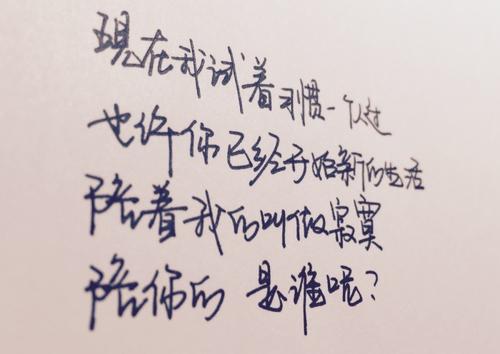 现在我试着习惯一个人过
也许你已经开始新的生活
陪着我的叫做寂寞
陪你的是谁呢?